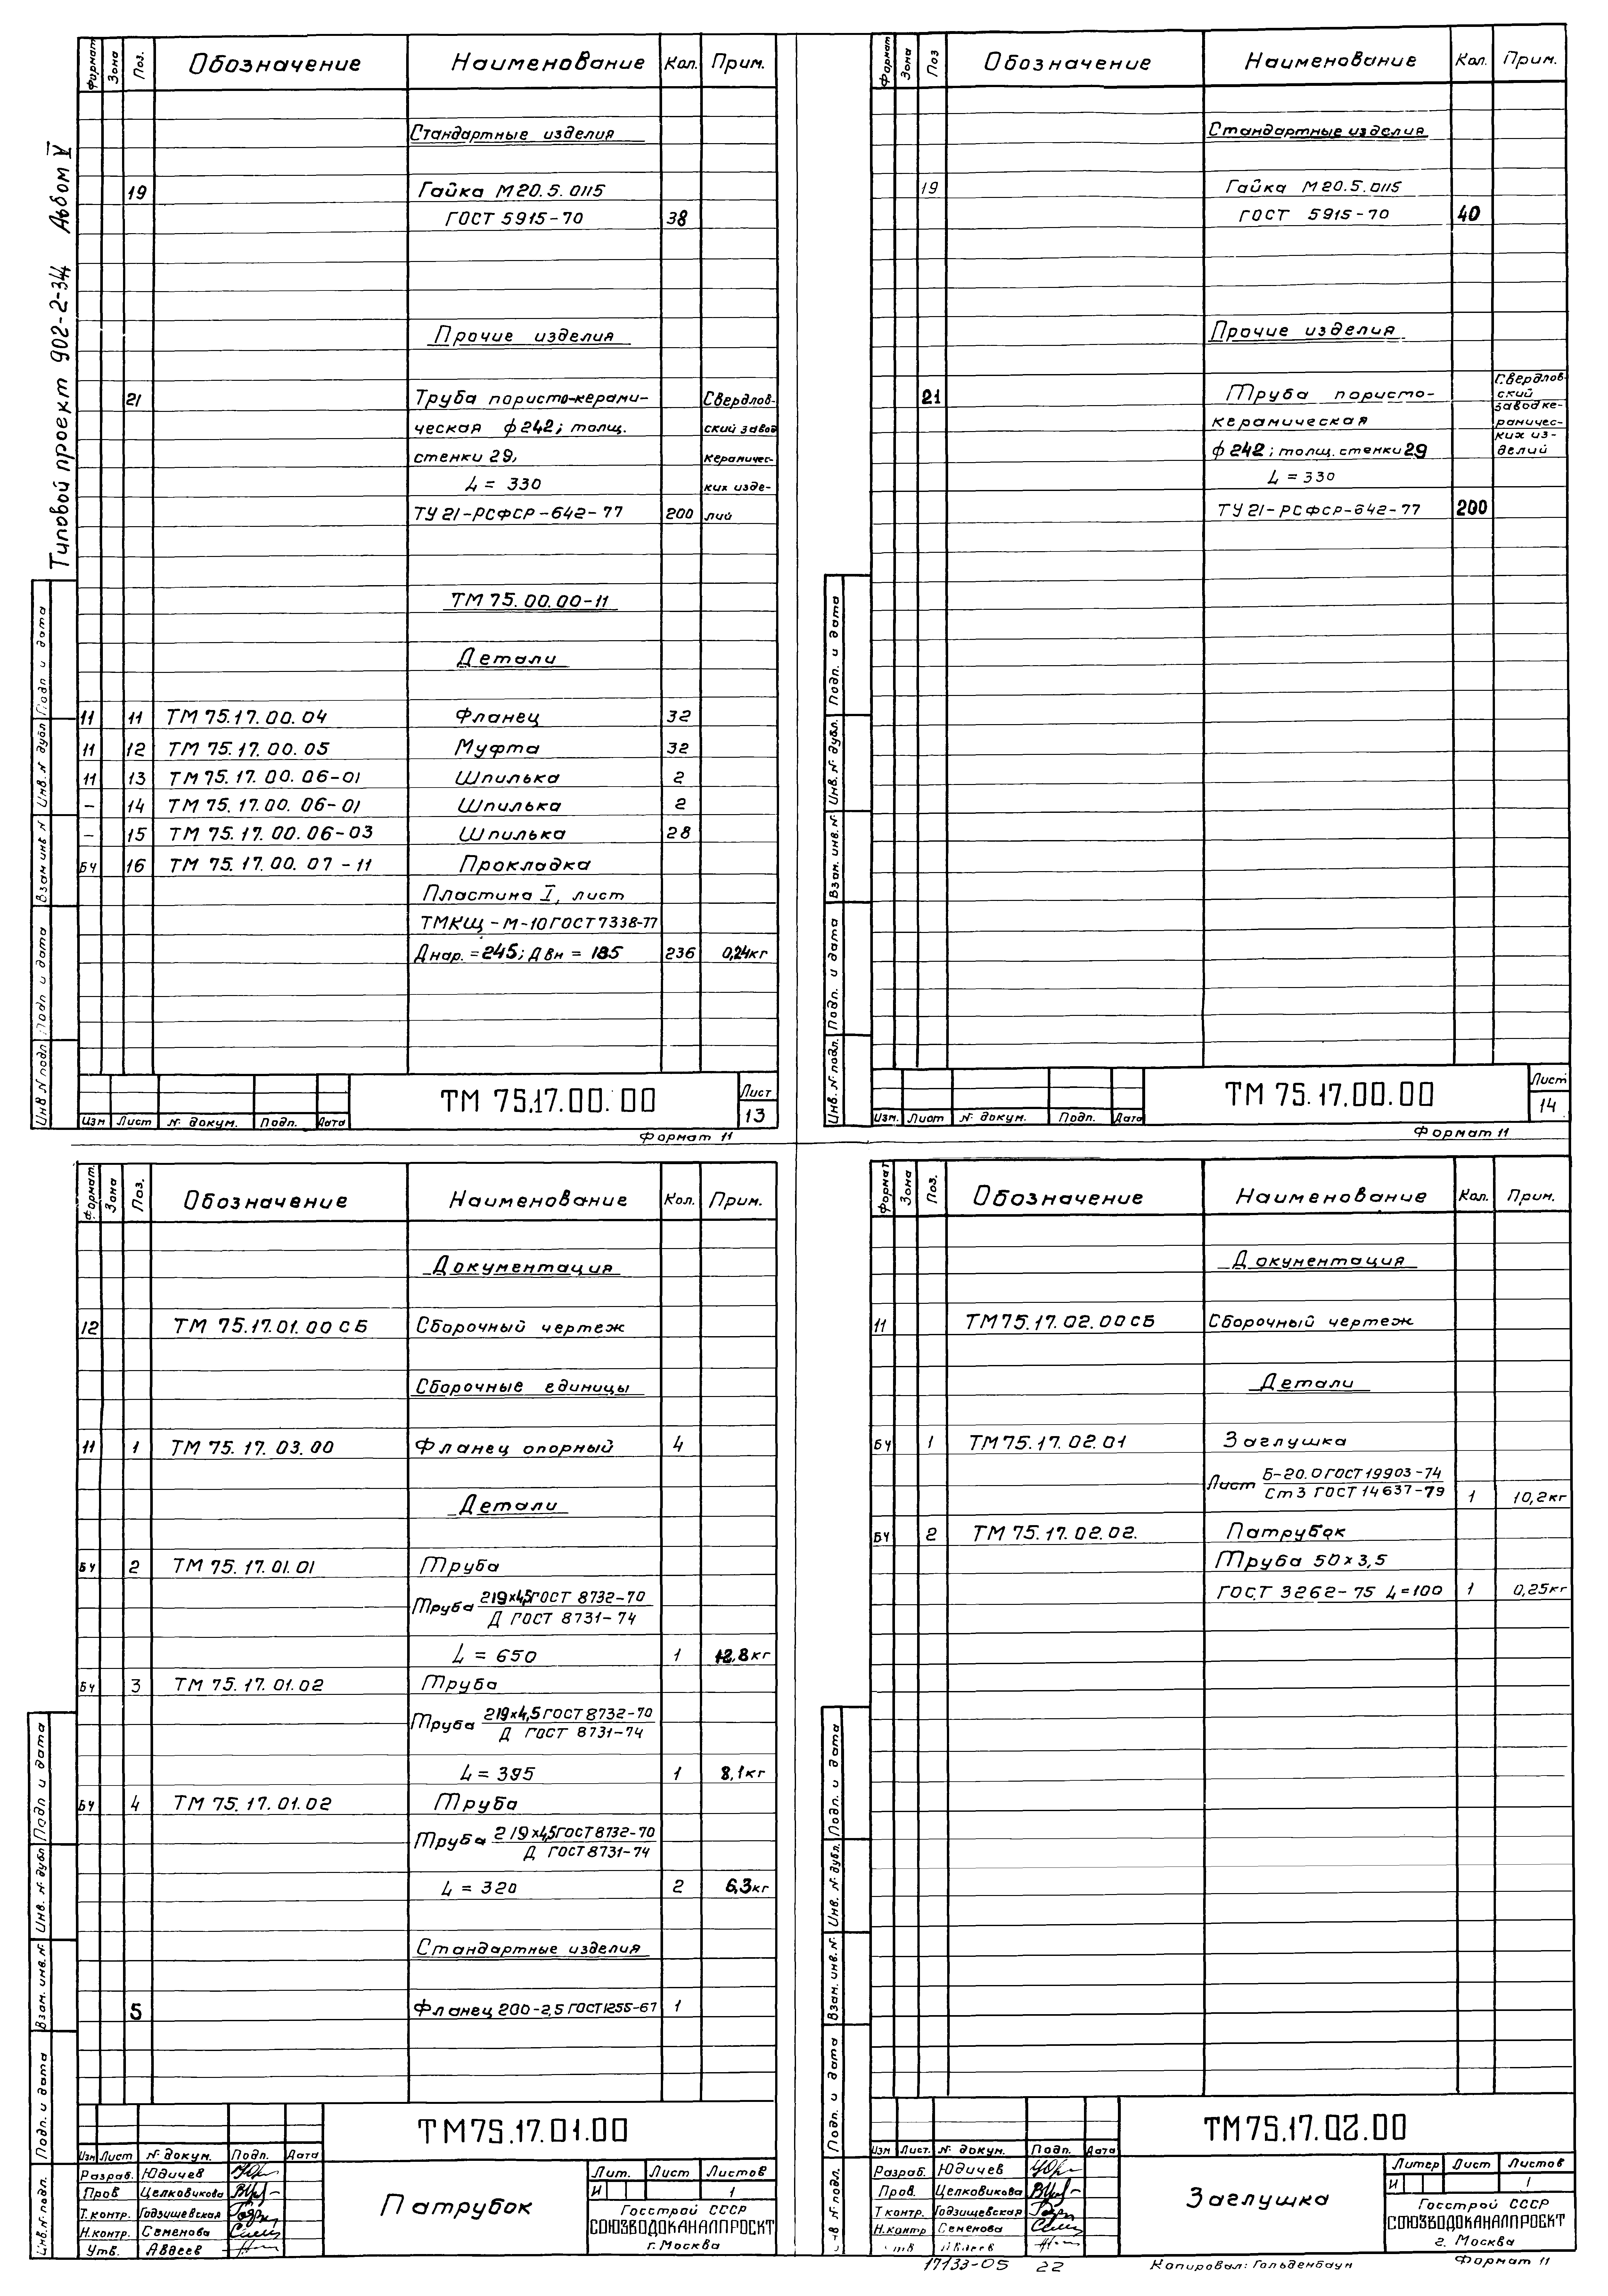 Типовой проект 902-2-344 Альбом V
Формат Зона Поз. Обозначение Наименование Кол. Прим.
Стандартные изделия
19 Гайка М20.5.0115
ГОСТ 5915-70 38
Прочие изделия
21 Труба пористо-керами- Свердлов-
ческая ф 242; толщ. ский завод
стенки 29, керамичес-
L = 330 ких изде-
ТУ 21-РСФСР-642-77 200 лий
ТМ 75.00.00-11
Детали
11 11 ТМ 75.17.00.04 Фланец 32
11 12 ТМ 75.17.00.05 Муфта 32
11 13 ТМ 75.17.00.06-01 Шпилька 2
– 14 ТМ 75.17.00.06-01 Шпилька 2
– 15 ТМ 75.17.00.06-03 Шпилька 28
БЧ 16 ТМ 75.17.00.07-11 Прокладка
Пластина I, лист
ТМКЩ-М-10 ГОСТ 7338-77
Днар. = 245; Двн = 185 236 0,24кг
Инв N подл Подп и дата Взам инв N Инв. N дубл Подп и дата
Изм Лист N докум. Подп. Дата
ТМ 75.17.00.00
Лист
13
Формат 11
Формат Зона Поз Обозначение Наименование Кол. Прим.
Стандартные изделия
19 Гайка М20.5.0115
ГОСТ 5915-70 40
Прочие изделия
21 Труба пористо- Свердлов-
ский
керамическая завод ке-
рамичес-
ф 242; толщ. стенки 29 ких из-
делий
L = 330
ТУ 21-РСФСР-642-77 200
Инв. N подл. Подп. и дата Взам. инв. N Инв. N дубл. Подп. и дата
Изм. Лист N докум. Подп. Дата
ТМ 75.17.00.00
Лист
14
Формат 11
Формат. Зона Поз. Обозначение Наименование Кол. Прим.
Документация
12 ТМ 75.17.01.00 СБ Сборочный чертеж
Сборочные единицы
11 1 ТМ 75.17.03.00 Фланец опорный 4
Детали
БЧ 2 ТМ 75.17.01.01 Труба
Труба 219х4,5 ГОСТ 8732-70
Д ГОСТ 8731-74
L = 650 1 12,8кг
БЧ 3 ТМ 75.17.01.02 Труба
Труба 219х4,5 ГОСТ 8732-70
Д ГОСТ 8731-74
L = 395 1 8,1кг
БЧ 4 ТМ 75.17.01.02 Труба
Труба 219х4,5 ГОСТ 8732-70
Д ГОСТ 8731-74
L = 320 2 6,3кг
Стандартные изделия
5 Фланец 200-2,5 ГОСТ 1255-67 1
Инв. N подл. Подп. и дата Взам. инв. N Инв. N дубл Подп и дата
ТМ75.17.01.00
Изм Лист N докум. Подп. Дата
Разраб. Юдичев
Пров Целковикова
Т.контр. Годзишевская
Н.контр. Семенова
Утв. Авдеев
Патрубок
Лит. Лист Листов
И 1
Госстрой СССР
СОЮЗВОДОКАНАЛПРОЕКТ
г. Москва
Формат Зона Поз. Обозначение Наименование Кол. Прим.
Документация
11 ТМ75.17.02.00 СБ Сборочный чертеж
Детали
БЧ 1 ТМ75.17.02.01 Заглушка
Лист Б-20.0 ГОСТ 19903-74
Ст3 ГОСТ 14637-79 1 10,2кг
БЧ 2 ТМ 75.17.02.02. Патрубок
Труба 50х3,5
ГОСТ 3262-75 L=100 1 0,25кг
N подл. Подп. и дата Взам. инв. N. Инв. N дубл. Подп. и дата
ТМ75.17.02.00
Изм Лист. N докум. Подп. Дата
Разраб. Юдичев
Пров. Целковикова
Т контр. Годзишевская
Н.контр Семенова
Утв Авдеев
Заглушка
Литер Лист Листов
И 1
Госстрой СССР
СОЮЗВОДОКАНАЛПРОЕКТ
г. Москва
17133-05 22 Копировал: Гольденбаун Формат 11